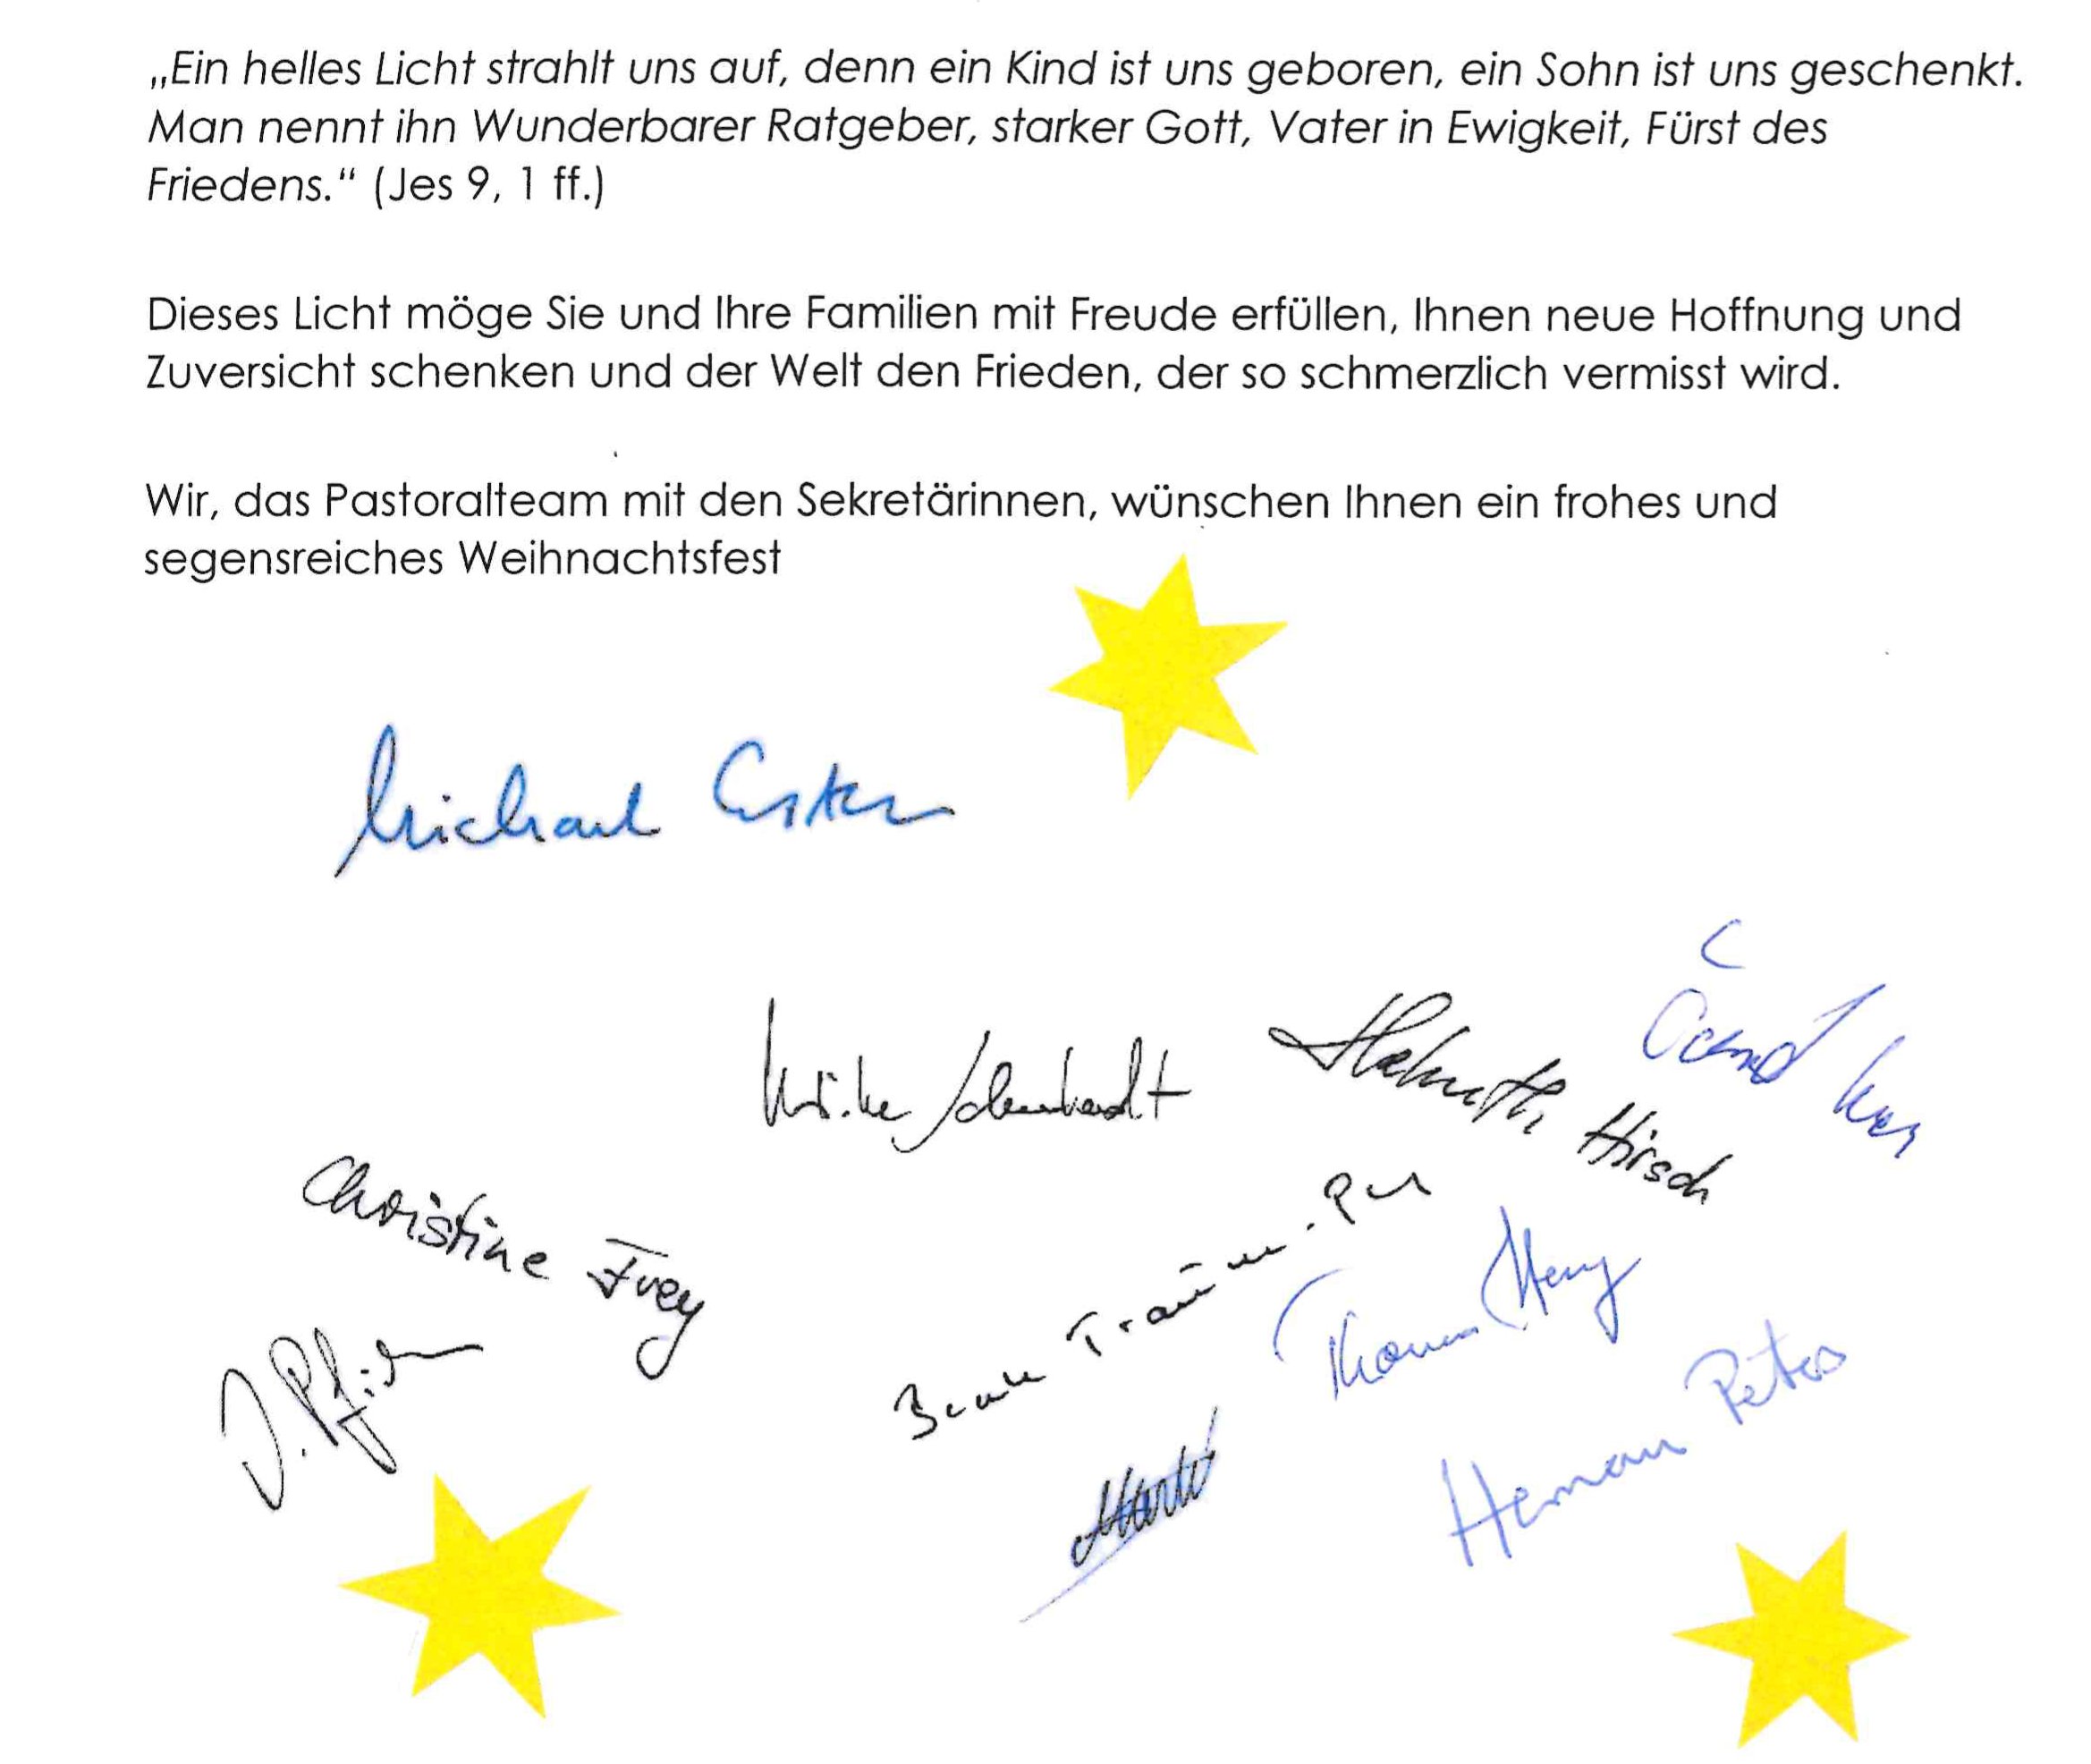 „Ein helles Licht strahlt uns auf, denn ein Kind ist uns geboren, ein Sohn ist uns geschenkt.
Man nennt ihn Wunderbarer Ratgeber, starker Gott, Vater in Ewigkeit, Fürst des
Friedens.“ (Jes 9, 1 ff.)
Dieses Licht möge Sie und Ihre Familien mit Freude erfüllen, Ihnen neue Hoffnung und
Zuversicht schenken und der Welt den Frieden, der so schmerzlich vermisst wird.
Wir, das Pastoralteam mit den Sekretärinnen, wünschen Ihnen ein frohes und
segensreiches Weihnachtsfest
Michael
Helmuth Hirsch
Christine Frey
Thomas
Herman Peter